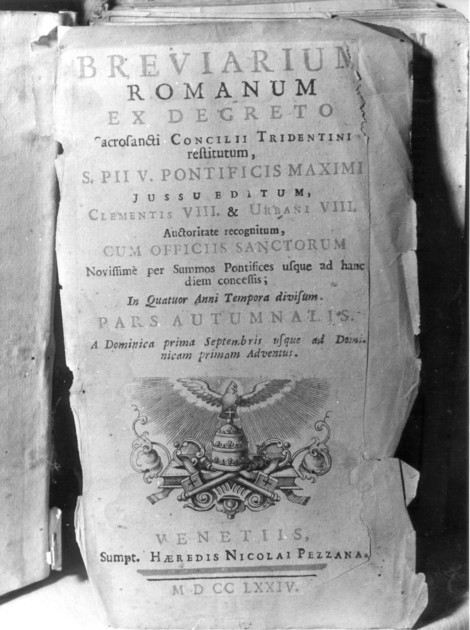 BREVIARIUM
ROMANUM
EX DECRETO
Sacrosancti CONCILII TRIDENTINI
restitutum,
S. PII V. PONTIFICIS MAXIMI
JUSSU EDITUM,
CLEMENTIS VIII. & URBANI VIII.
Auctoritate recognitum,
CUM OFFICIIS SANCTORUM
Novissimè per Summos Pontifices usque ad hanc
diem concessis;
In Quatuor Anni Tempora divisum.
PARS AUTUMNALIS.
A Dominica prima Septembris usque ad Domi-
nicam primam Adventus.
VENETIIS,
Sumpt. HÆREDIS NICOLAI PEZZANA.
M D CC LXXIV.